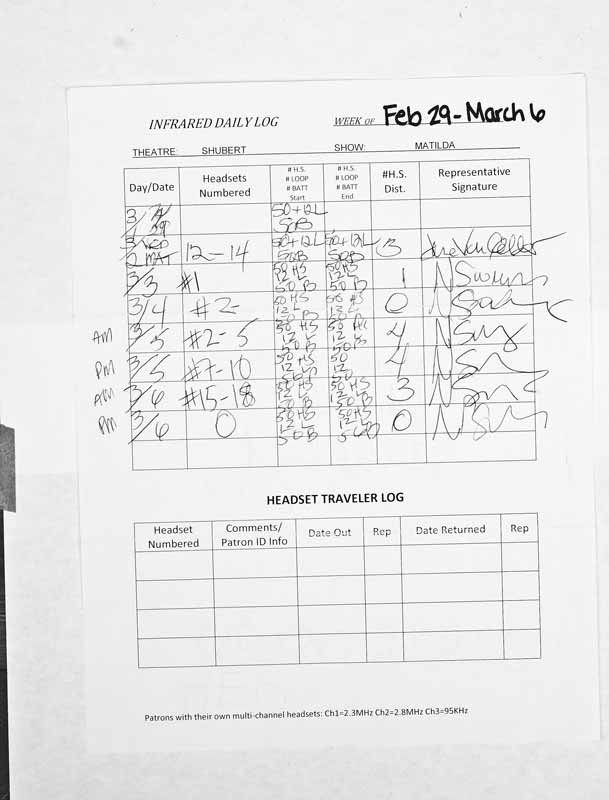 INFRARED DAILY LOG WEEK OF Feb 29-March 6
THEATRE: SHUBERT SHOW: MATILDA
Day/Date Headsets Numbered # H.S. # LOOP # BATT Start # H.S. # LOOP # BATT End #H.S. Dist. Representative Signature
50+12L
50B
3/ WED 12-14 50+12L 50+12L 3
2 MAT 50B 50B
3/3 #1 50 HS 12 L 50 B 50 HS 12 L 50 B 1
3/4 #2- 50 HS 12 L 50 B 50 HS 12 L 50 B 0
AM 3/5 #2-5 50 HS 12 L 50 B 50 HS 12 L 50 B 4
PM 3/5 #7-10 50 HS 12 L 50 12 50 4
AM 3/6 #15-18 50 HS 12 L 50 B 50 HS 12 L 50 B 3
PM 3/6 0 50 HS 12 L 50 B 50 HS 12 L 0
HEADSET TRAVELER LOG
Headset Numbered Comments/ Patron ID Info Date Out Rep Date Returned Rep
Patrons with their own multi-channel headsets: Ch1=2.3MHz Ch2=2.8MHz Ch3=95KHz